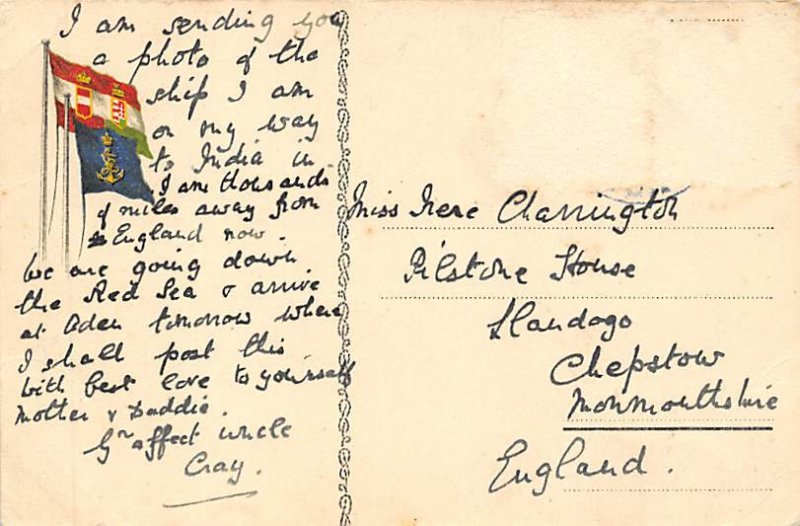 I am sending you
a photo of the
ship I am
on my way
to India in
I am thousands
of miles away from
England now.
We are going down
the Red Sea & arrive
at Aden tomorrow where
I shall post this
With best love to yourself
Mother & Daddie.
Yr affect uncle
Cray.
Miss Irene Charrington
Pilstone House
Llandogo
Chepstow
Monmouthshire
England.